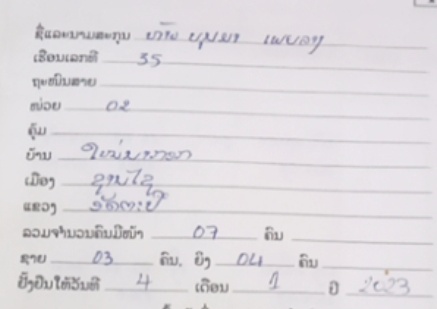 ຊື່ແລະນາມສະກຸນ ທ້າວ ບຸນມາ
ເຮືອນເລກທີ 35
ຖະໜົນສາຍ
ໜ່ວຍ 02
ຄຸ້ມ
ບ້ານ ໃໝ່
ເມືອງ ຊານໄຊ
ແຂວງ ອັດຕະປື
ລວມຈຳນວນຄົນມີໜ້າ 07 ຄົນ
ຊາຍ 03 ຄົນ, ຍິງ 04 ຄົນ
ຢັ້ງຢືນໃຫ້ວັນທີ 4 ເດືອນ 1 ປີ 2023